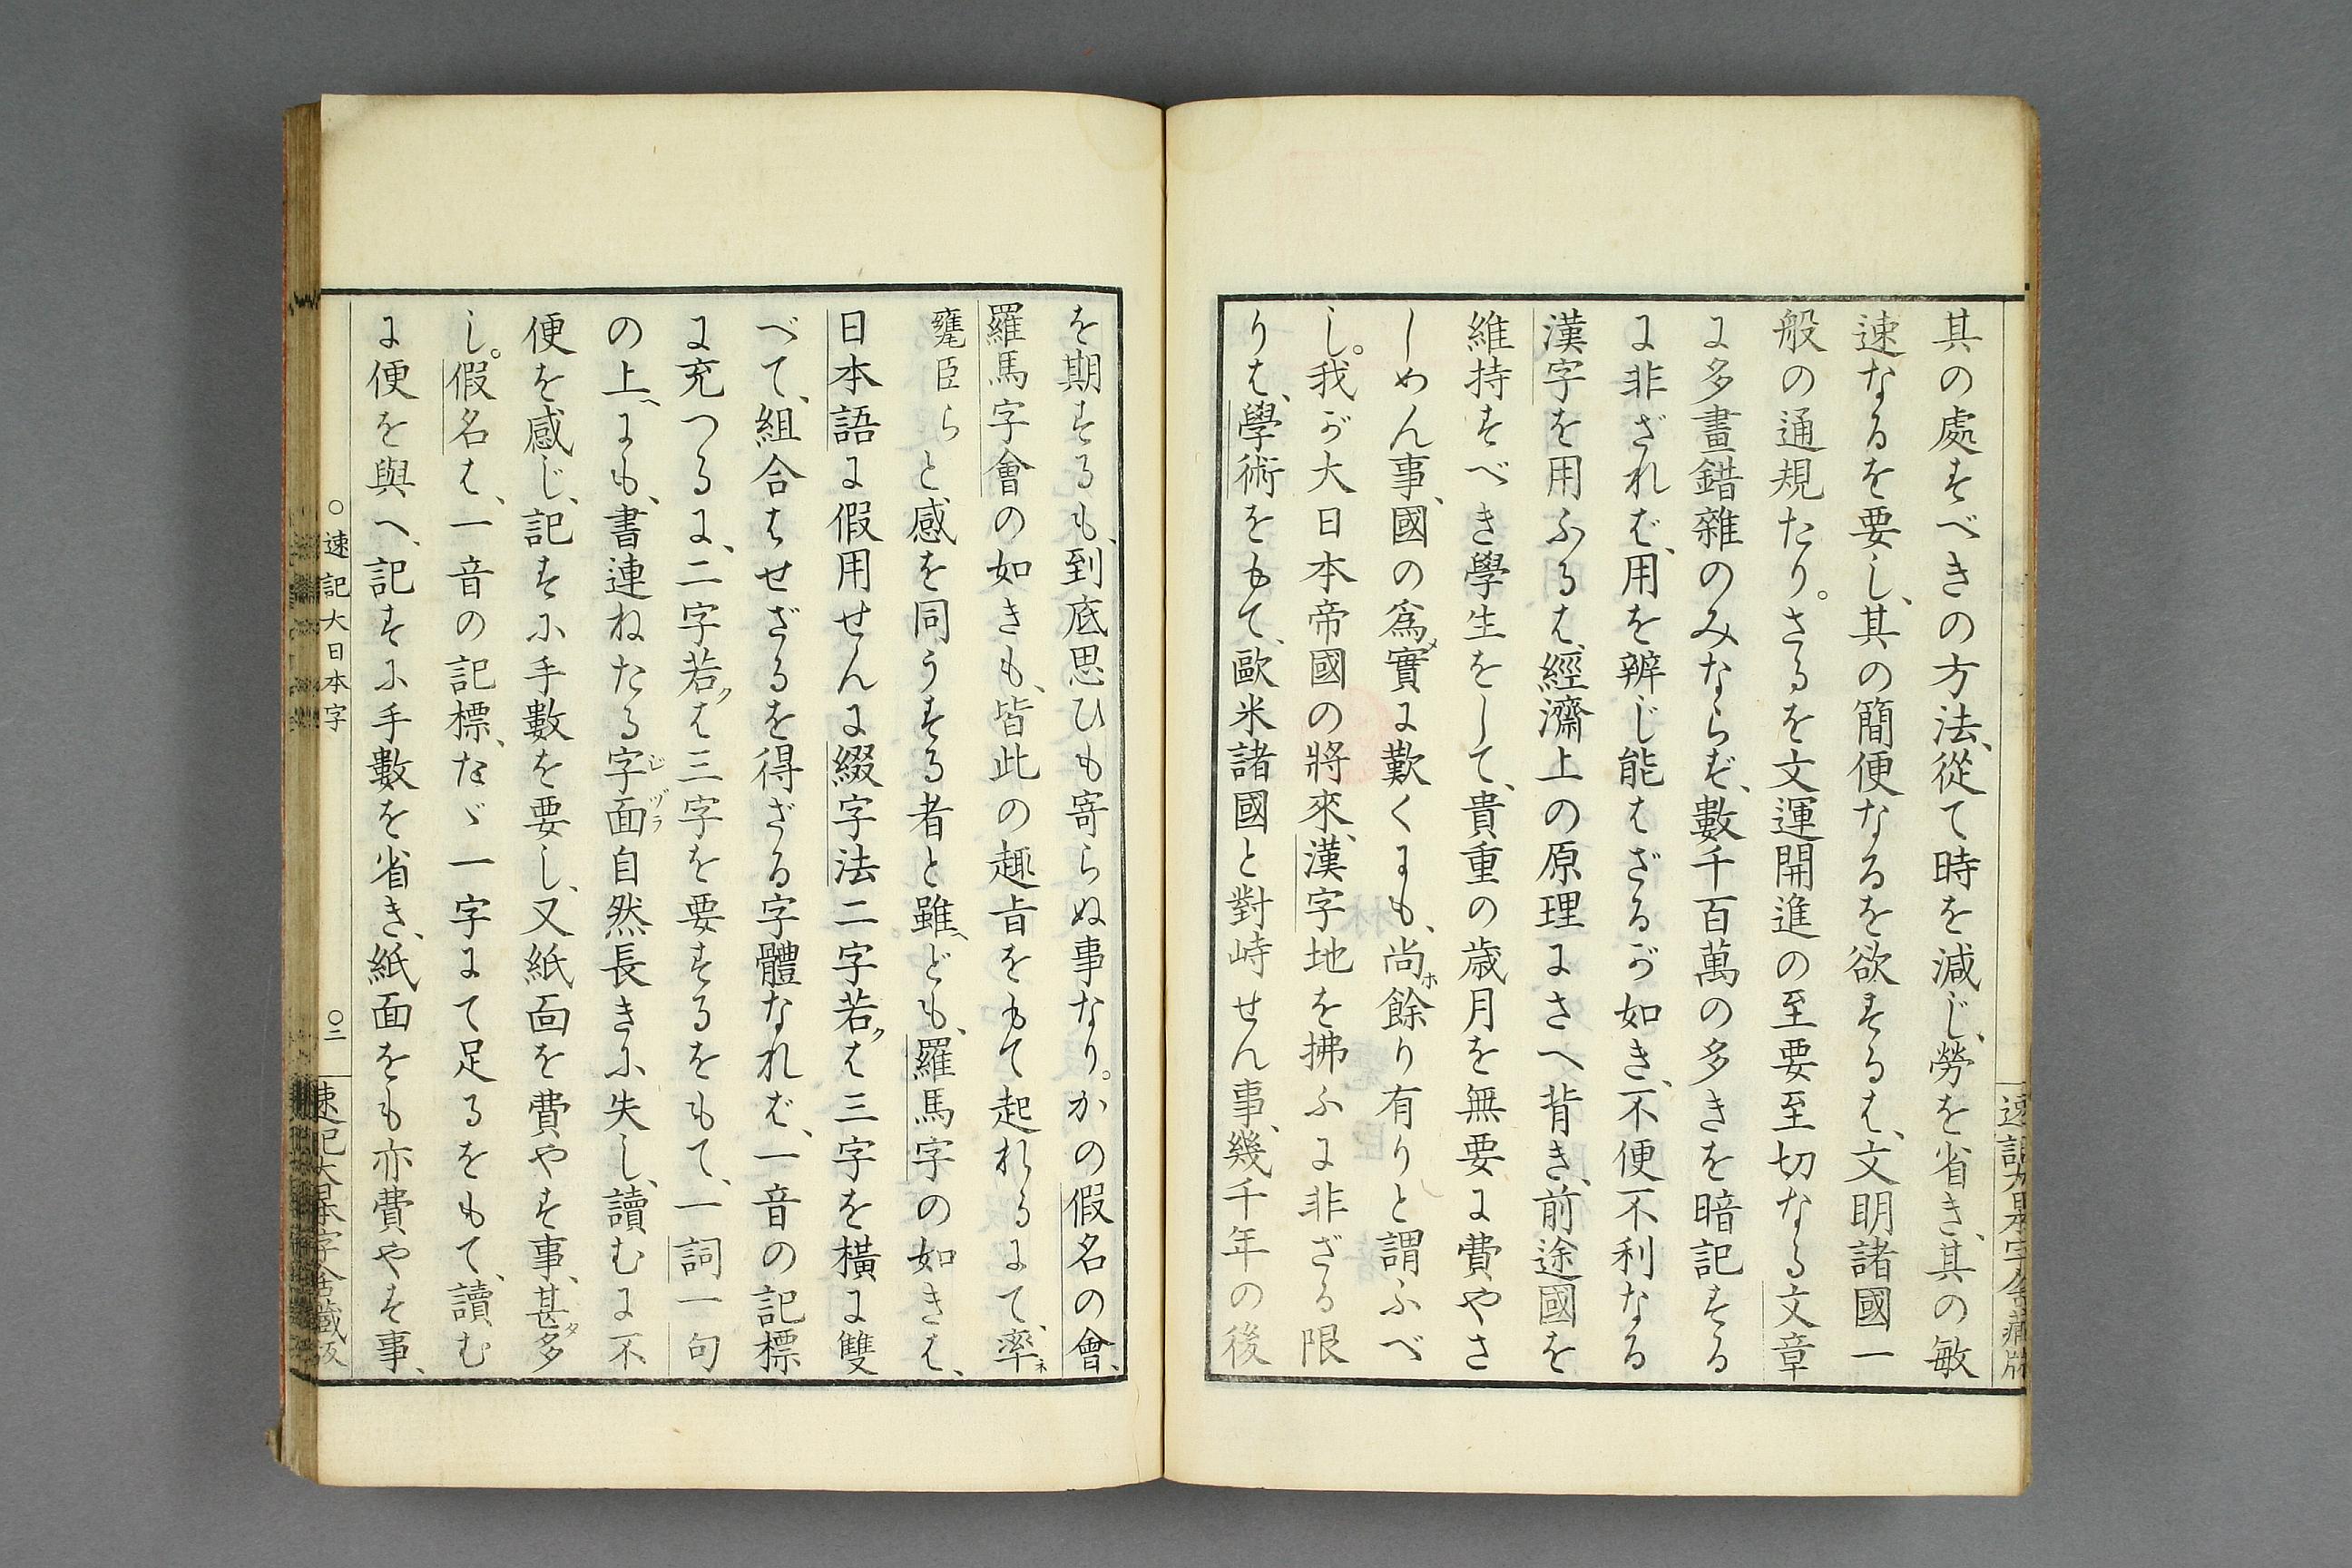 其の處すべきの方法、從て時を減じ、勞を省き、其の敏
速なるを要し、其の簡便なるを欲するは、文明諸國一
般の通規たり。さるを文運開進の至要至切なる文章
に多畫錯雜のみならず、數千百萬の多きを暗記する
に非ざれば、用を辨じ能はざるが如き、不便不利なる
漢字を用ふるは、經濟上の原理にさへ背き、前途國を
維持すべき學生をして、貴重の歳月を無要に費やさ
しめん事、國の爲メ實に歎くにも、尚ホ餘り有りと謂ふべ
し。我が大日本帝國の將來、漢字地を拂ふに非ざる限
りは、學術をもて、歐米諸國と對峙せん事、幾千年の後
を期するも、到底思ひも寄らぬ事なり。かの假名の會、
羅馬字會の如きも、皆此の趣旨をもて起れるにて、率ネ
甕臣らと感を同うする者と雖ヘども、羅馬字の如きは、
日本語に假用せんに綴字法二字若クは三字を橫に雙
べて、組合はせざるを得ざる字體なれば、一音の記標
に充つるに、二字若クは三字を要するをもて、一詞一句
の上ヘにも、書連ねたる字面じヅラ自然長きに失し、讀むに不
便を感じ、記すに手數を要し、又紙面を費やす事、甚多タ
し。假名は、一音の記標、なゞ一字にて足るをもて、讀む
に便を與へ、記すに手數を省き、紙面をも亦費やす事、
○速記大日本字
○二
速記大日本字會藏版